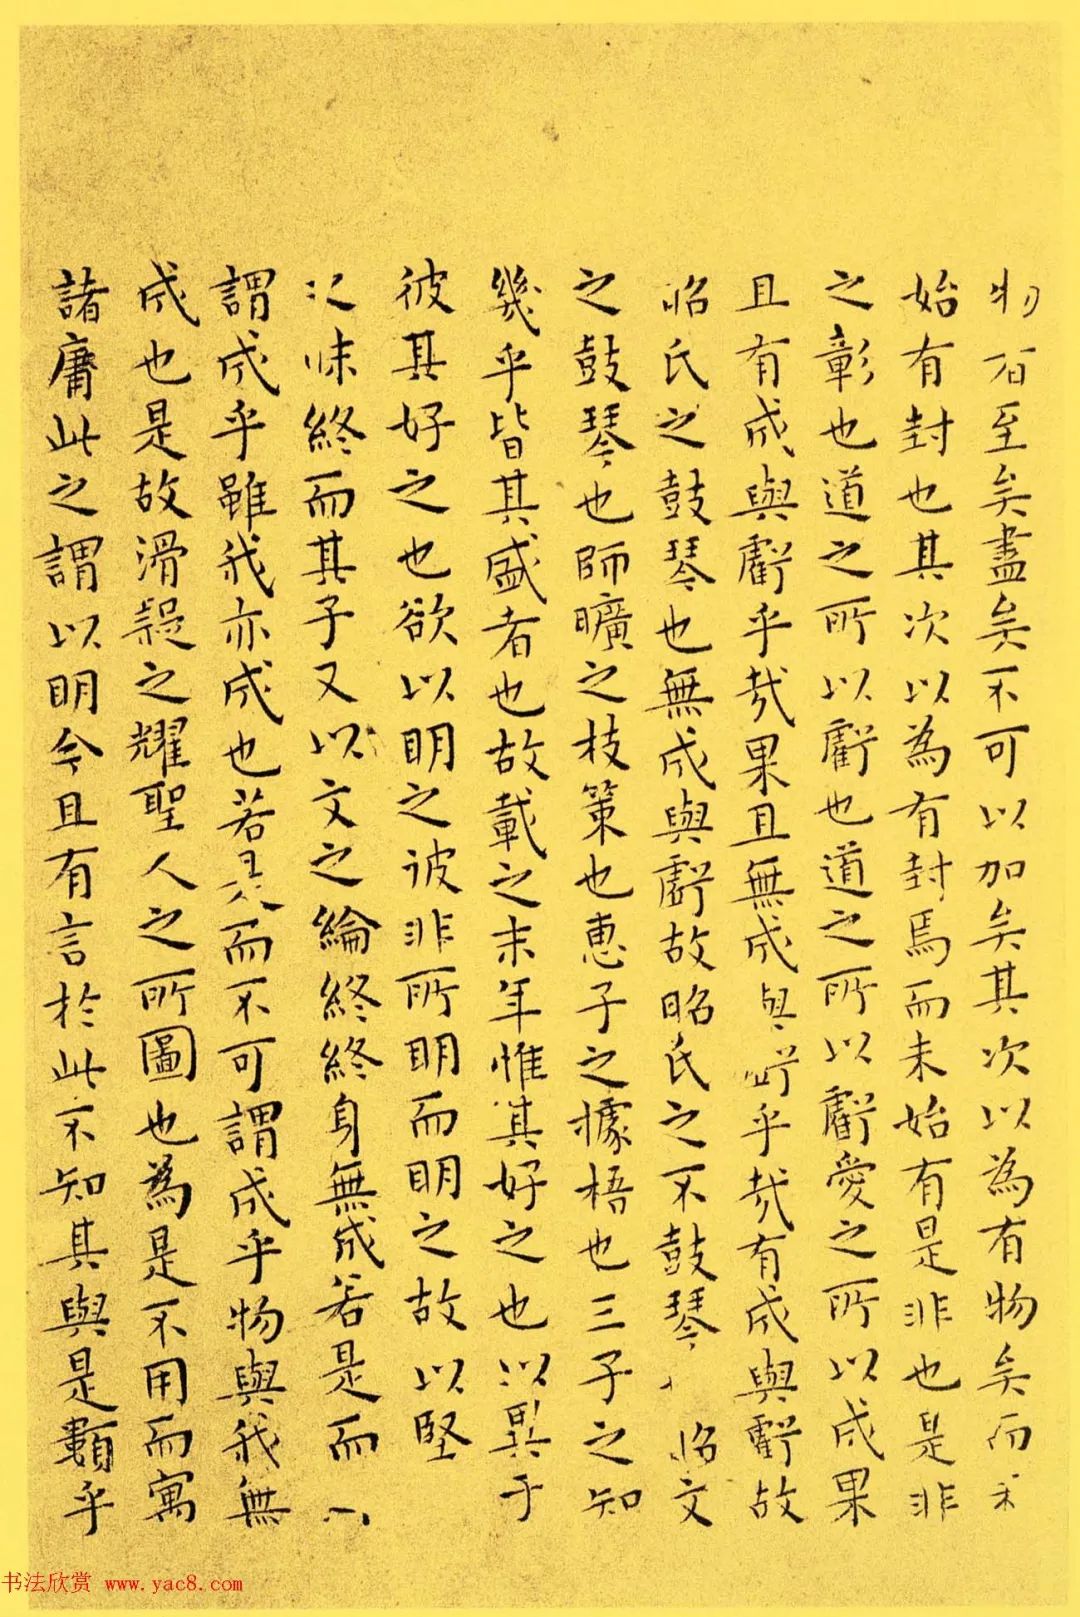 物者至矣盡矣不可以加矣其次以為有物矣而未
始有封也其次以為有封焉而未始有是非也是非
之彰也道之所以虧也道之所以虧愛之所以成果
且有成與虧乎哉果且無成與虧乎哉有成與虧故
昭氏之鼓琴也無成與虧故昭氏之不鼓琴 昭文
之鼓琴也師曠之枝策也惠子之據梧也三子之知
幾乎皆其盛者也故載之末年惟其好之也以異于
彼其好之也欲以明之彼非所明而明之故以堅
之昧終而其子又以文之綸終終身無成若是而
謂成乎雖我亦成也若是而不可謂成乎物與我無
成也是故滑疑之耀聖人之所圖也為是不用而寓
諸庸此之謂以明今且有言於此不知其與是類乎
书法欣赏 www.yac8.com